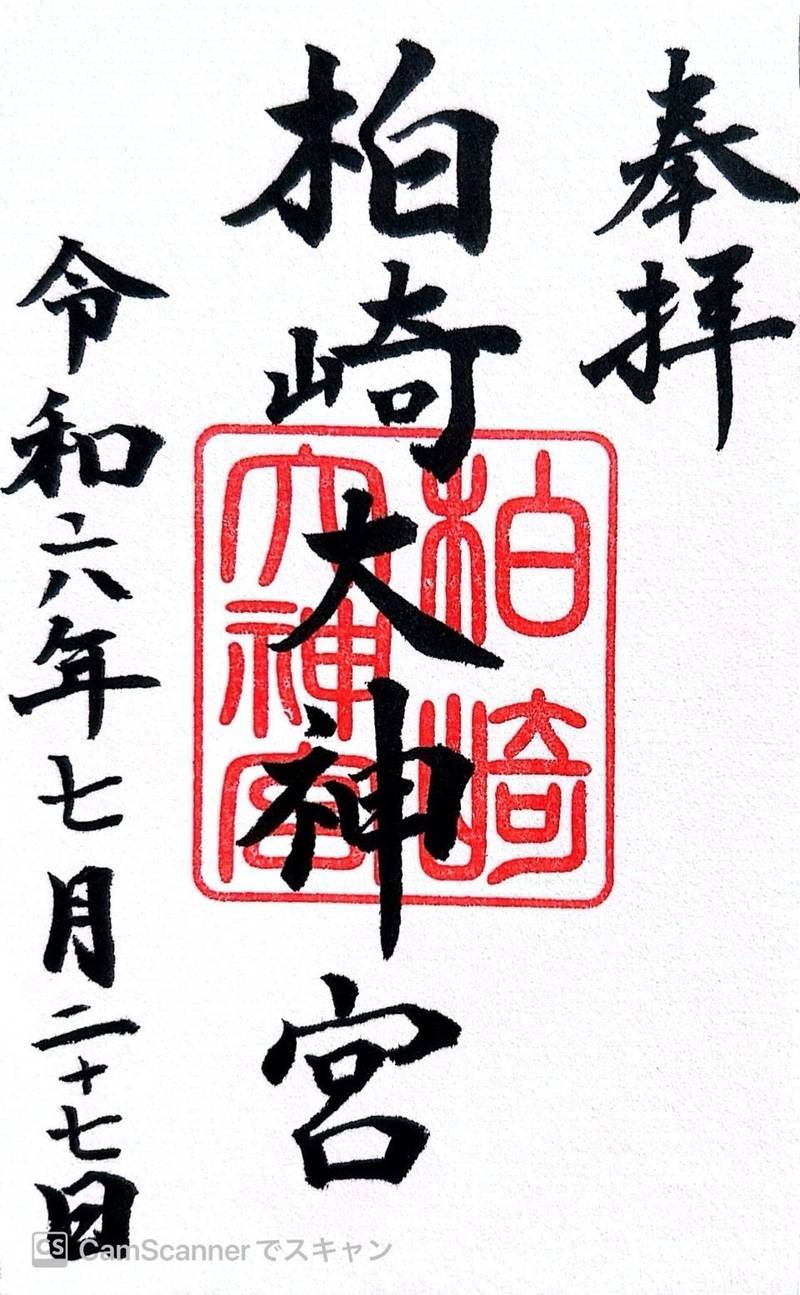 奉拝
柏崎大神宮
柏崎
大神宮
令和六年七月二十七日
CS CamScannerでスキャン